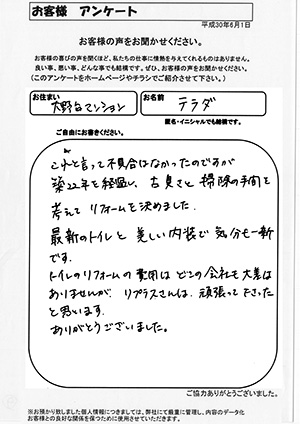 お客様 アンケート
平成30年6月1日
お客様の声をお聞かせください。
お客様の喜びの声を聞くほど、私たちの仕事に情熱を与えてくれるものはありません。
良い事、悪い事、どんな事でも結構です。ぜひ、お客様の声をお聞かせください。
(このアンケートをホームページやチラシでご紹介させて下さい。)
お住まい
大野台マンション
お名前
テラダ
匿名・イニシャルでも結構です。
ご自由にお書きください。
これと言って不具合はなかったのですが
築22年を経過し、古臭さと掃除の手間を
考えて リフォームを決めました。
最新のトイレと 美しい内装で 気分も一新
です。
トイレのリフォームの 費用は どこの会社も大差は
ありませんが、リプラスさんは、頑張って下さった
と思います。
ありがとうございました。
ご協力ありがとうございました。
※お預かり致しました個人情報につきましては、弊社にて厳重に管理し、内容のデータ化
お客様との良好な関係を保つために使用させていただきます。